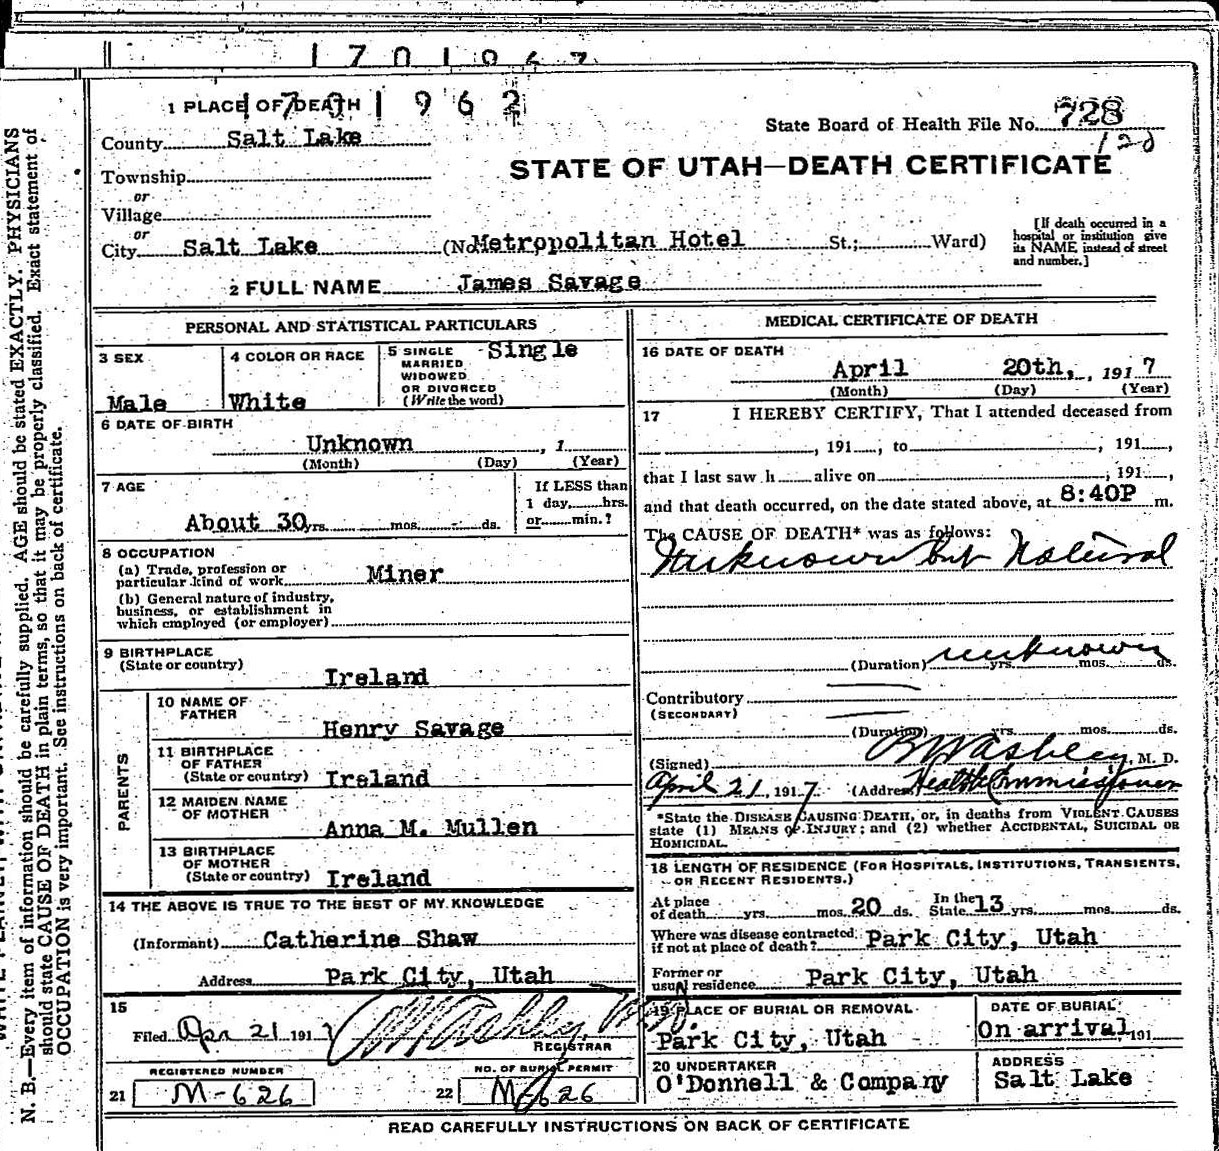 1701962
1 PLACE OF DEATH 1701962
State Board of Health File No. 728
120
County Salt Lake
STATE OF UTAH—DEATH CERTIFICATE
Township
or
Village
or
City Salt Lake (No. Metropolitan Hotel St.; Ward)
[If death occurred in a hospital or institution give its NAME instead of street and number.]
2 FULL NAME James Savage
PERSONAL AND STATISTICAL PARTICULARS
3 SEX Male
4 COLOR OR RACE White
5 SINGLE MARRIED WIDOWED OR DIVORCED (Write the word) Single
6 DATE OF BIRTH
Unknown , 1
(Month) (Day) (Year)
7 AGE
If LESS than
1 day, hrs.
About 30 yrs. mos. ds. or min.?
8 OCCUPATION
(a) Trade, profession or
particular kind of work Miner
(b) General nature of industry,
business, or establishment in
which employed (or employer)
9 BIRTHPLACE
(State or country)
Ireland
PARENTS
10 NAME OF
FATHER
Henry Savage
11 BIRTHPLACE
OF FATHER
(State or country) Ireland
12 MAIDEN NAME
OF MOTHER
Anna M. Mullen
13 BIRTHPLACE
OF MOTHER
(State or country) Ireland
14 THE ABOVE IS TRUE TO THE BEST OF MY KNOWLEDGE
(Informant) Catherine Shaw
Address Park City, Utah
15
Filed Apr 21 1917
REGISTRAR
REGISTERED NUMBER
21 M-626
NO. OF BURIAL PERMIT
22 M-626
MEDICAL CERTIFICATE OF DEATH
16 DATE OF DEATH
April 20th, , 1917
(Month) (Day) (Year)
17 I HEREBY CERTIFY, That I attended deceased from
, 191 , to , 191 ,
that I last saw h alive on , 191 ,
and that death occurred, on the date stated above, at 8:40P m.
The CAUSE OF DEATH* was as follows:
Unknown but Natural
(Duration) unknown yrs. mos. ds.
Contributory
(SECONDARY)
(Duration) yrs. mos. ds.
(Signed) Ashley, M. D.
April 21, 1917 (Address) Health Commissioner
*State the DISEASE CAUSING DEATH, or, in deaths from VIOLENT CAUSES
state (1) MEANS OF INJURY; and (2) whether ACCIDENTAL, SUICIDAL OR
HOMICIDAL.
18 LENGTH OF RESIDENCE (FOR HOSPITALS, INSTITUTIONS, TRANSIENTS,
OR RECENT RESIDENTS.)
At place of death yrs. mos. 20 ds. In the State 13 yrs. mos. ds.
Where was disease contracted,
if not at place of death? Park City, Utah
Former or
usual residence Park City, Utah
19 PLACE OF BURIAL OR REMOVAL
Park City, Utah
DATE OF BURIAL
On arrival, 191
20 UNDERTAKER
O'Donnell & Company
ADDRESS
Salt Lake
READ CAREFULLY INSTRUCTIONS ON BACK OF CERTIFICATE
N. B.—Every item of information should be carefully supplied. AGE should be stated EXACTLY. PHYSICIANS
should state CAUSE OF DEATH in plain terms, so that it may be properly classified. Exact statement of
OCCUPATION is very important. See instructions on back of certificate.